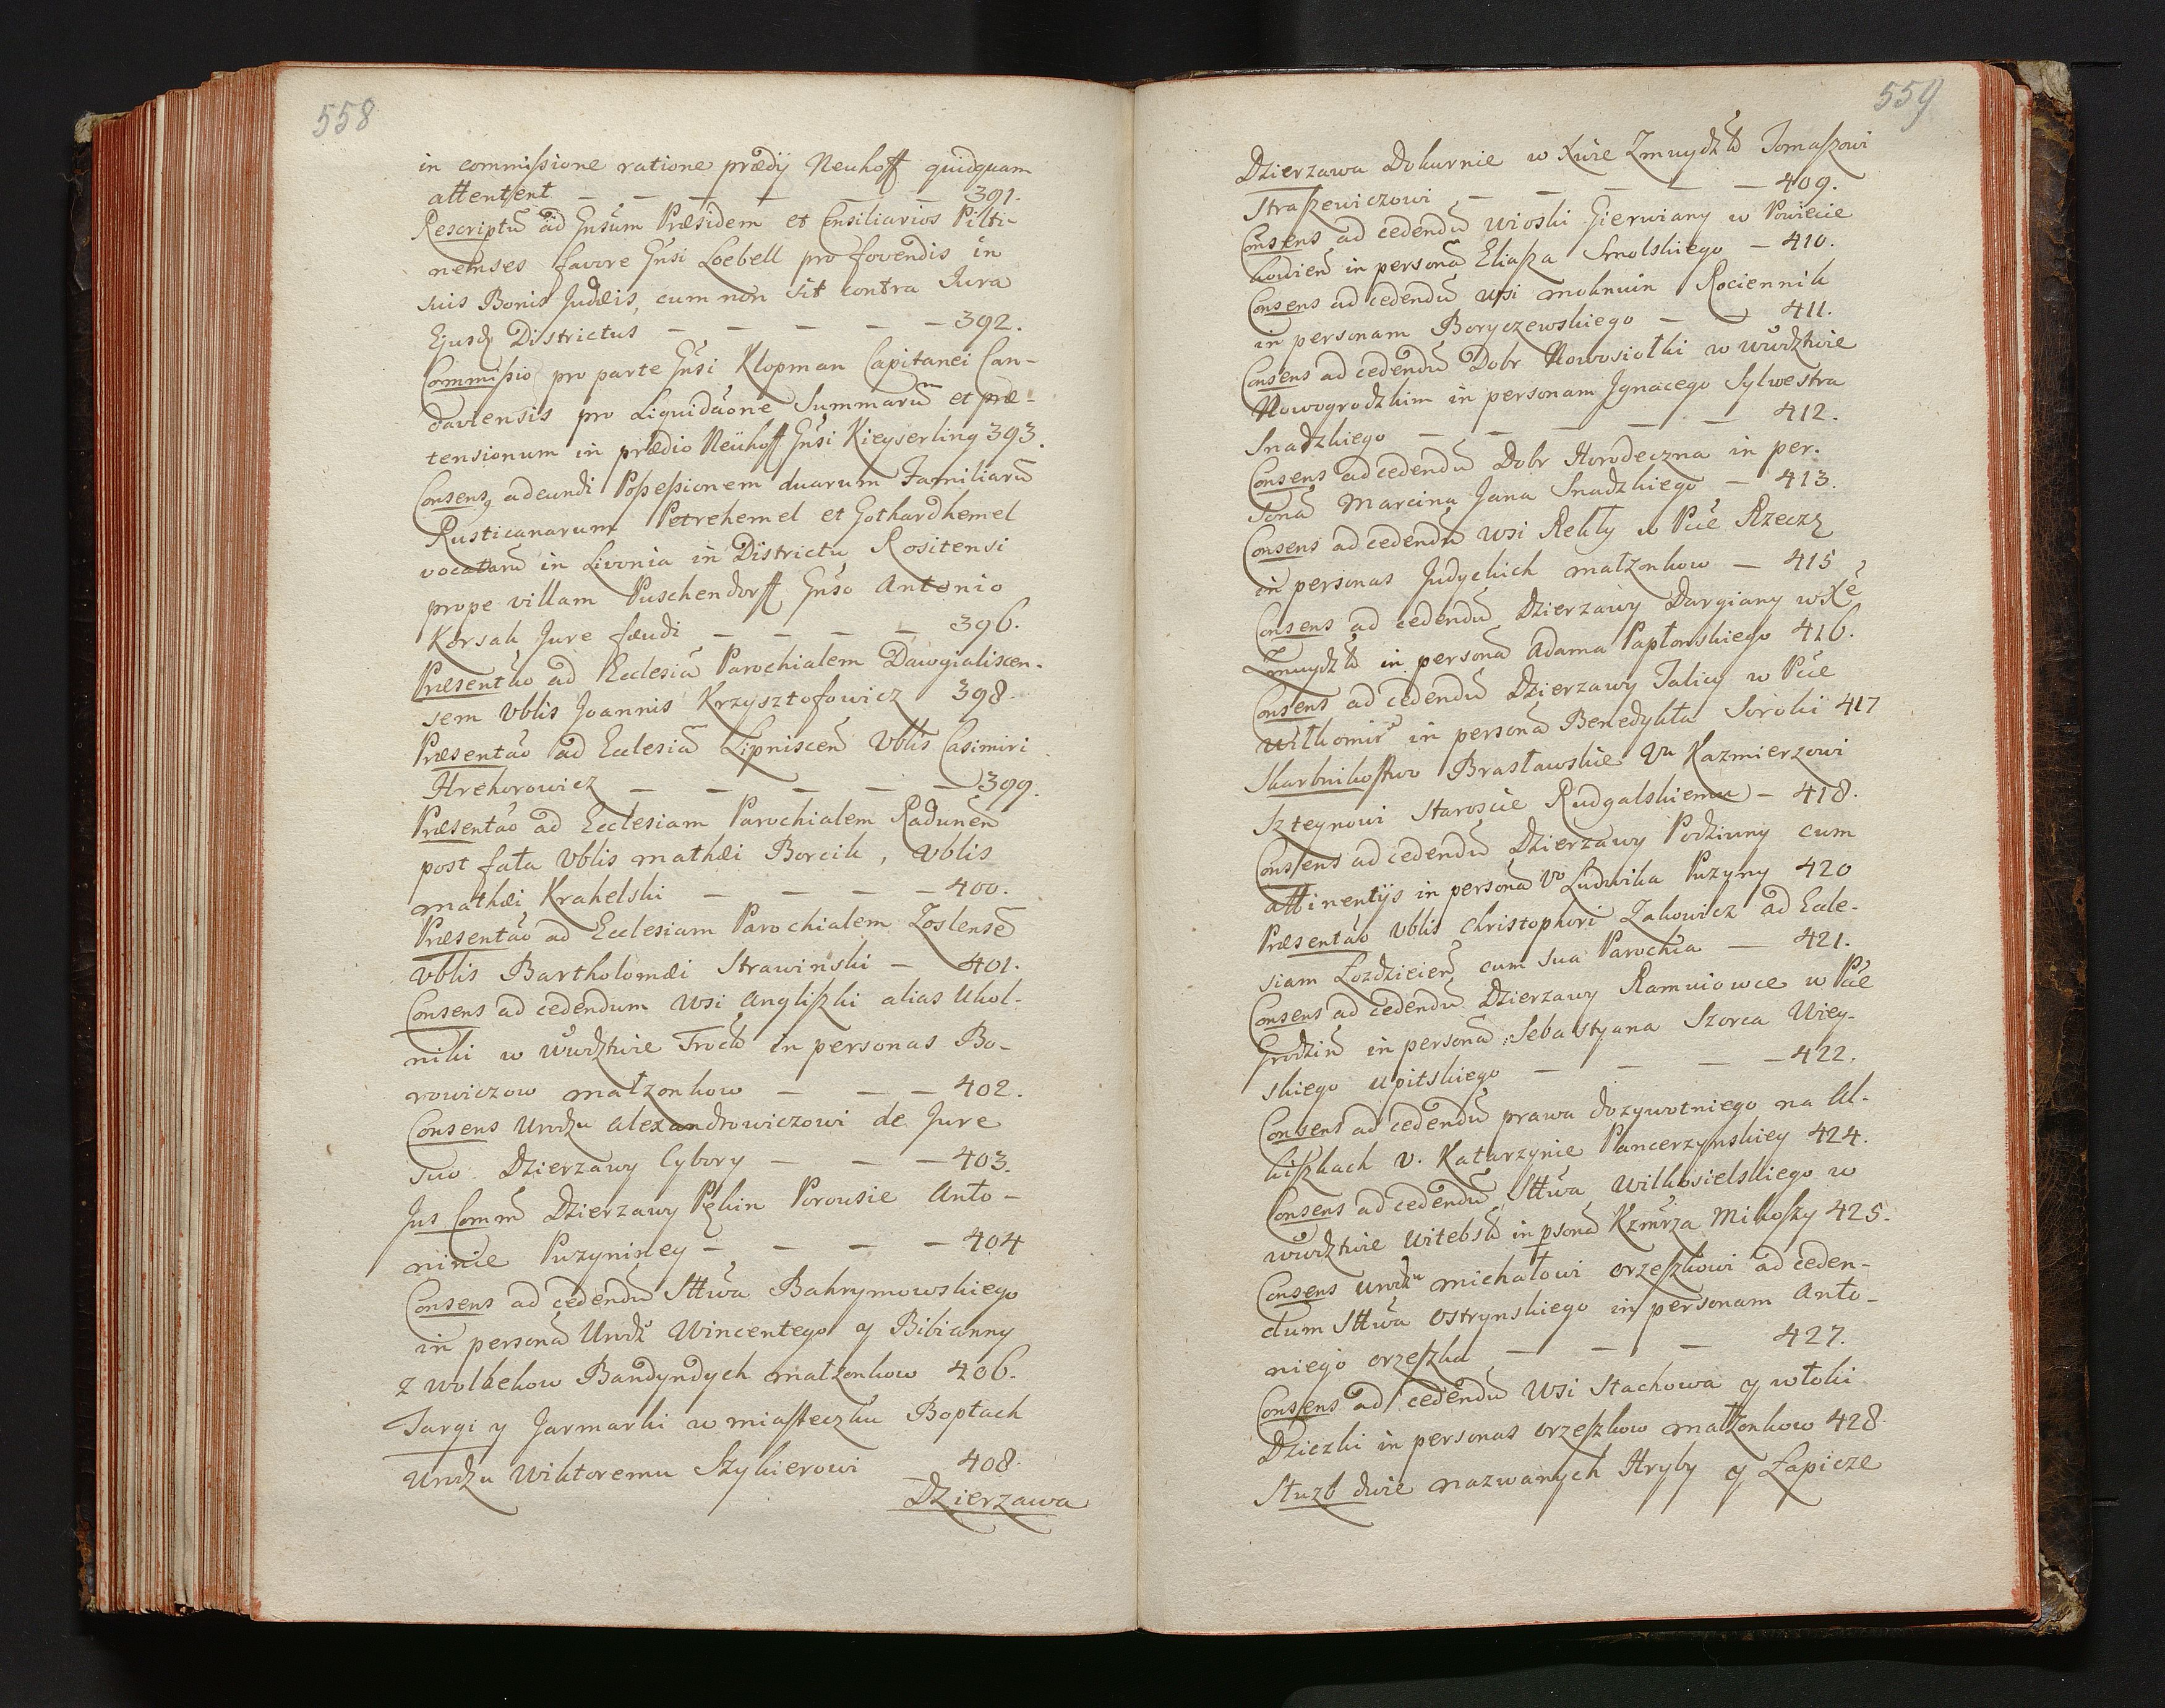 558
in commissione ratione prædÿ Neuhoff quidquam
attentent — — — — — 391.
Rescriptũ ad Gnsum Præsidem et Consiliarios Pilti-
nenses favore Gnsi Loebell pro fovendis in
suis Bonis Judæis, cum non sit contra Jura
Ejusdz Districtus — — — — — 392.
Commissio pro parte Gnsi Klopman Capitanei Can-
daviensis pro Liquidãone Summarũ et præ-
tensionum in prædio Neuhoff Gnsi Kieyserling 393.
Consens9 adeundi Possessionem duarum Familiarũ
Rusticanarum Petrehemel et Gothardhemel
vocatarũ in Livonia in Districtu Rositensi
prope villam Puschendorff Gnso Antonio
Korsak Jure fæudi — — — — 396.
Præsentão ad Ecclesiã Parochialem Dawgialiscen-
sem Vblis Joannis Krzysztofowicz 398.
Præsentão ad Ecclesiã Lipniscen̄ Vblis Casimiri
Hrehorowicz — — — — — 399.
Præsentão ad Ecclesiam Parochialem Radunen̄
post fata Vblis mathæi Borcik, Vblis
mathæi Krahelski — — — — 400.
Præsentão ad Ecclesiam Parochialem Zoslensē
Vblis Bartholomæi Strawinski — 401.
Consens ad cedendum wsi Angliszki alias Ukol-
niki w wudztwie Trock̃ in personas Bo-
rowiczow małzonkow — — — 402.
Consens Urodzu Alexandrowiczowi de Jure
suo Dzierzawy Cybory — — — 403.
Jus Comm̃ Dzierzawy Pękin Porousie Anto-
ninie Puzyniney — — — — 404
Consens ad cedendũ Sttwa Bahrymowskiego
in personã Urodz Wincentego y Bibianny
z wolbekow Bandyndych małzonkow 406.
Targi y Jarmarki w miasteczku Boptach
Urodzu Wiktoremu Szykierowi 408.
Dzierzawa
559
Dzierzawa Dokurnie w Xwie Zmuydzk̃ Tomaszowi
Straszewiczowi — — — — — 409.
Consens ad cedendũ wioski Gierwiany w Powiecie
kowień in personã Eliasza Smolskiego — 410.
Consens ad cedendũ wsi moknuin Rociennik
in personam Boryczewskiego — — 411.
Consens ad cedendũ Dobr Nowosiołki w wudztwie
Nowogrodzkim in personam Jgnacego Sylwestra
Snadzkiego — — — — — 412.
Consens ad cedendũ Dobr Horodeczna in per-
sonã Marcina Jana Snadzkiego — 413.
Consens ad cedendũ wsi Rekły w Pcie Rzeczz
in personas Judyckich małzonkow — 415
Consens ad cedendũ Dzierzawy Dargiany w Xẽ
Zmuydzk̃ in personã Adama Paplonskiego 416.
Consens ad cedendũ Dzierzawy Talicy w Pcie
wiłkomir̃ in personã Benedykta Soroki 417
Skarbnikostwo Brasławskie Vu Kazmierzowi
Szteynowi Staroscie Rudgalskiemu — 418.
Consens ad cedendũ Dzierzawy Podziuny cum
attinentÿs in personã Vo Ludwika Puzyny 420
Præsentão Vblis Christophori Zakowicz ad Eccle-
siam Łozdzieien̄ cum sua Parochia — 421.
Consens ad cedendũ Dzierzawy Ramuiowce w Pcie
Grodzień in personã Sebastyana Szorca Wiey-
skiego upitskiego — — — — 422.
Consens ad cedendũ prawa dozywotniego na Ul-
kiszkach V. Katarzynie Pancerzynskiey 424.
Consens ad cedendũ Sttwa Wilkosielskiego w
wudztwie Witebsk̃ in psonã Kzmrza Mikoszy 425.
Consens Urodzu michałowi orzeszkowi ad ceden-
dum Sttwa Ostrynskiego in personam Anto-
niego orzeszka — — — 427.
Consens ad cedendũ wsi Stachowa y włoki
Dziezki in personas orzeszkow małzonkow 428.
Słuzb dwie nazwanych Hryby y Łapicze